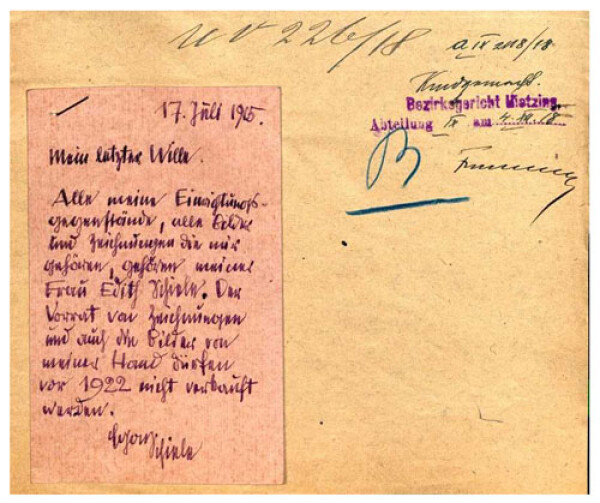 u V 226/18
a IX 2018/18
Kundgemacht.
Bezirksgericht Hietzing,
Abteilung IX am 4. XII. 18
B
17. Juli 1915.
Mein letzter Wille.
Alle meine Einrichtungs-
gegenstände, alle Bilder
und Zeichnungen die mir
gehören, gehören meiner
Frau Edith Schiele. Der
Vorrat von Zeichnungen
und auch die Bilder von
meiner Hand dürfen
vor 1922 nicht verkauft
werden.
Egon
Schiele